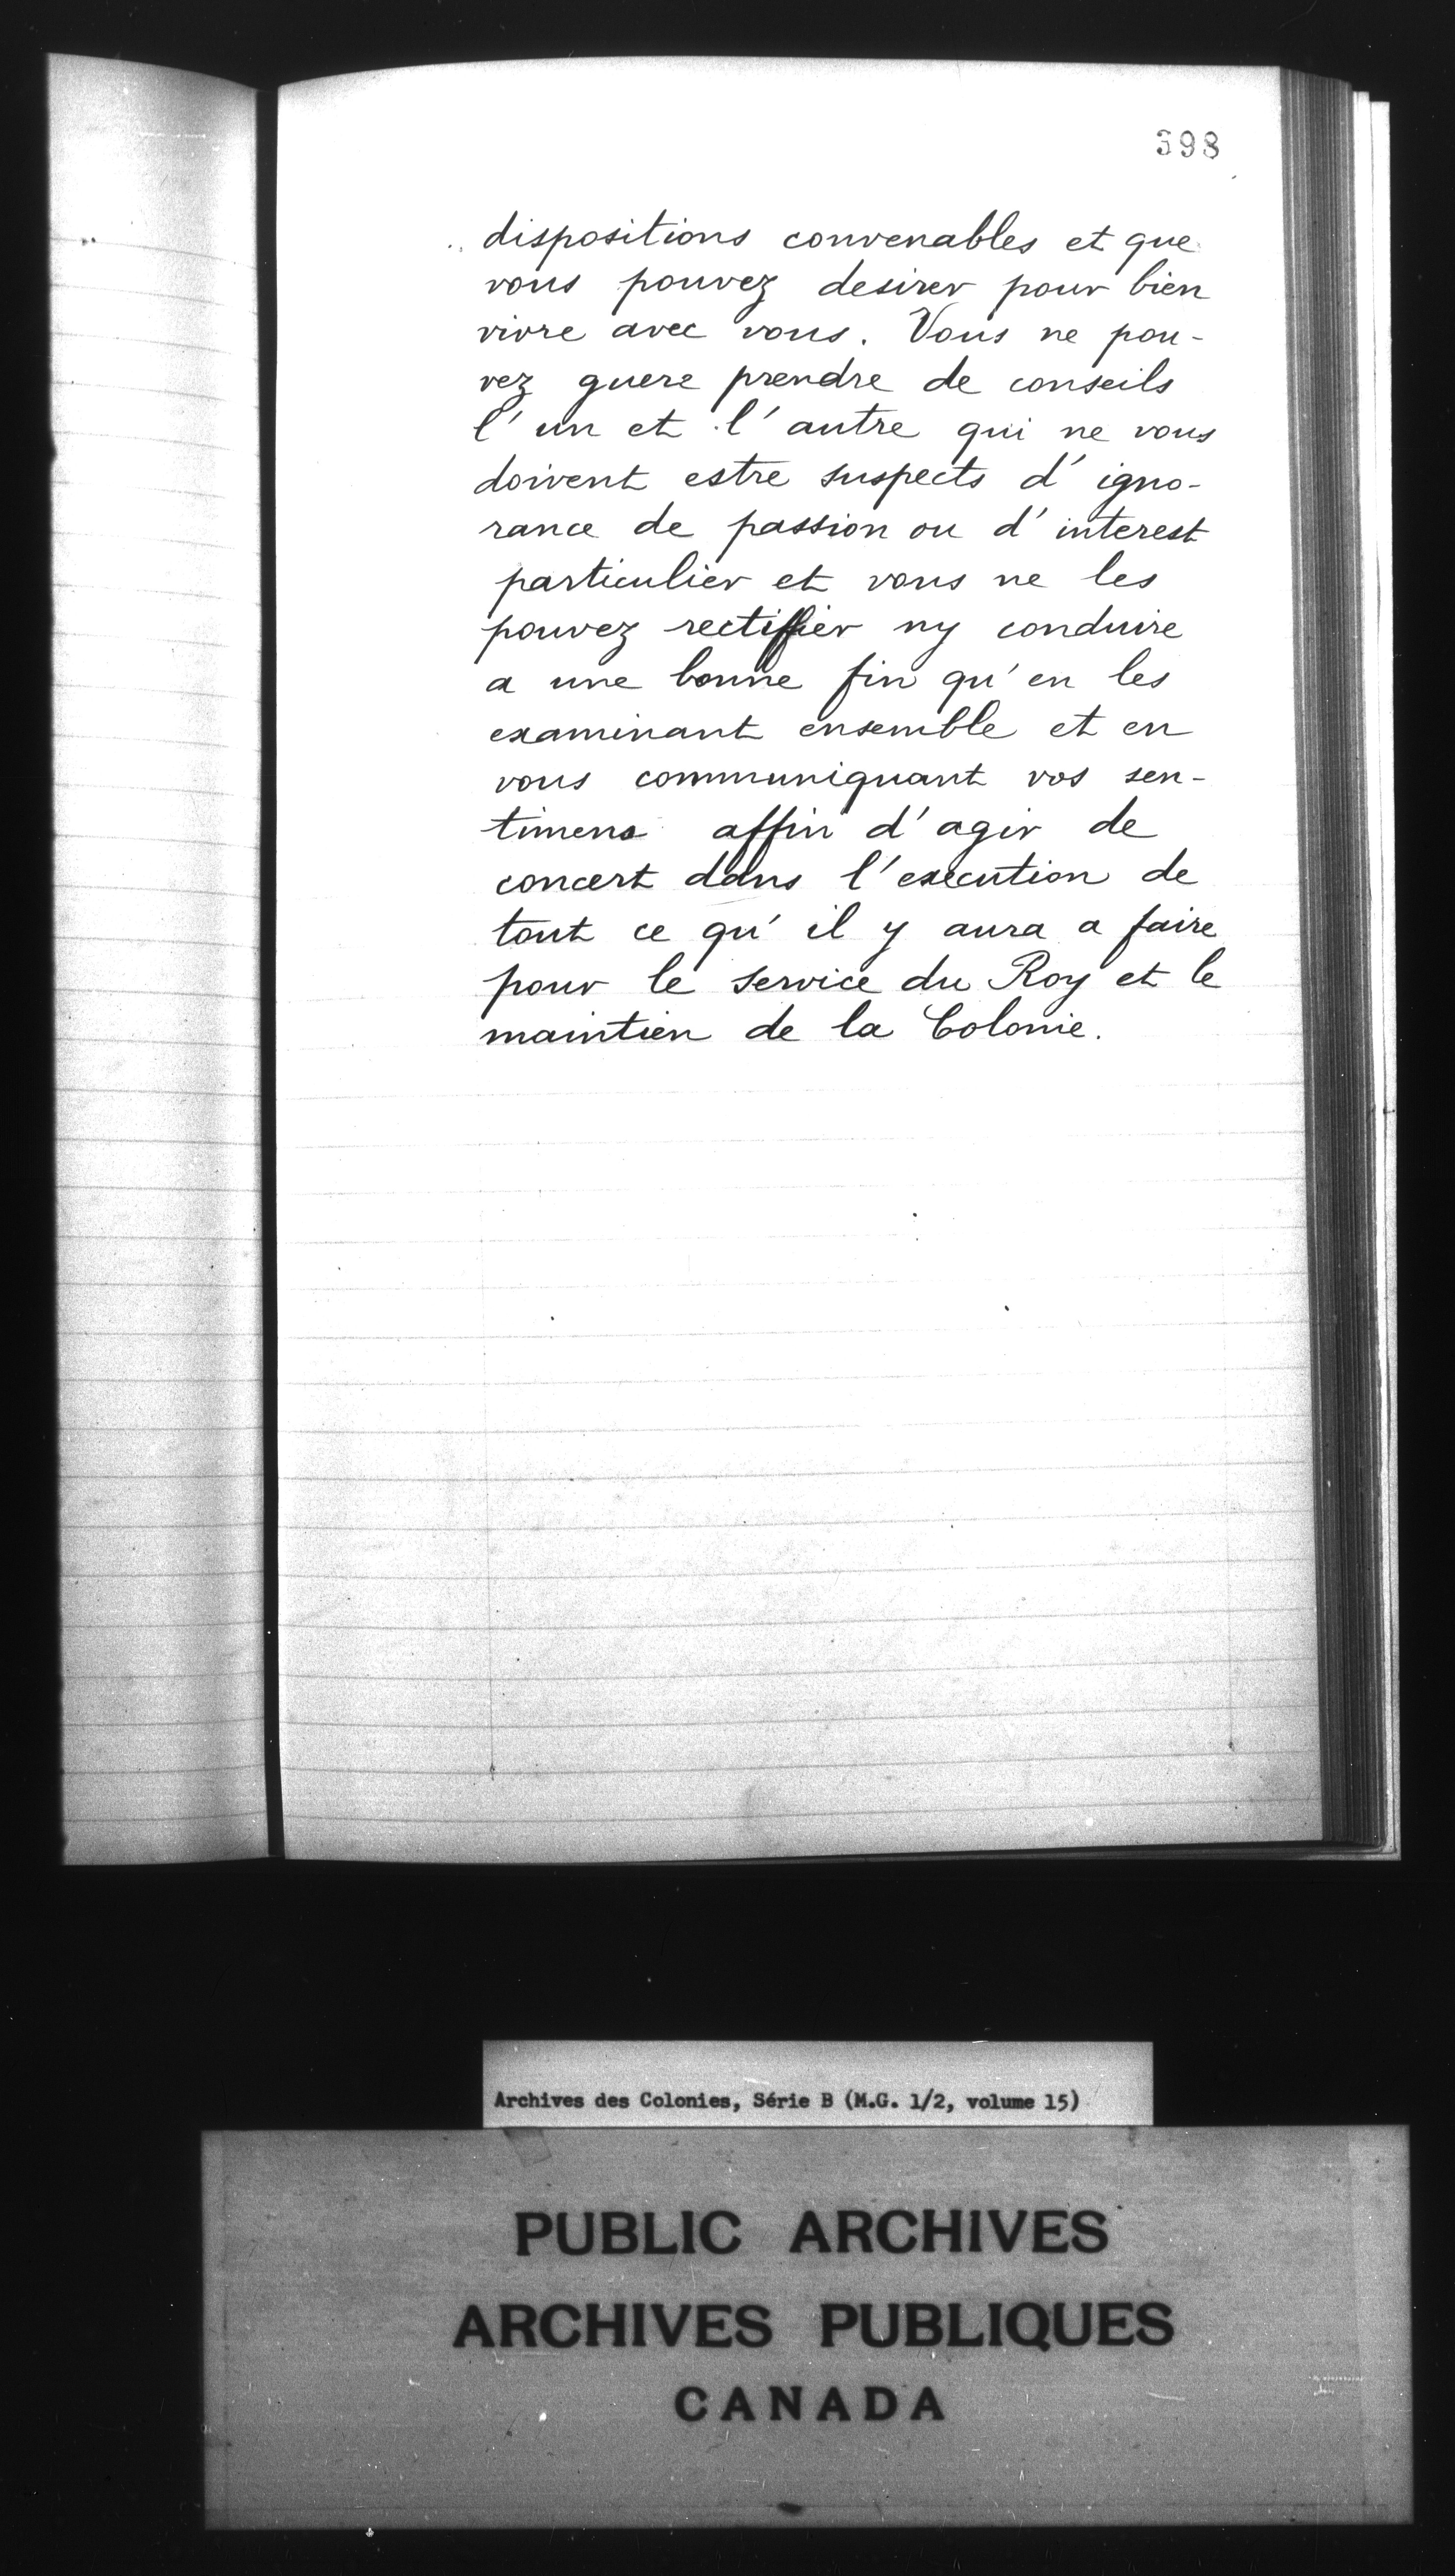 398
dispositions convenables et que
vous pouvez desirer pour bien
vivre avec vous. Vous ne pou-
vez guere prendre de conseils
l'un et l'autre qui ne vous
doivent estre suspects d'igno-
rance de passion ou d'interest
particulier et vous ne les
pouvez rectiffier ny conduire
a une bonne fin qu'en les
examinant ensemble et en
vous communiquant vos sen-
timens affin d'agir de
concert dans l'execution de
tout ce qu'il y aura a faire
pour le service du Roy et le
maintien de la Colonie.
Archives des Colonies, Série B (M.G. 1/2, volume 15)
PUBLIC ARCHIVES
ARCHIVES PUBLIQUES
CANADA